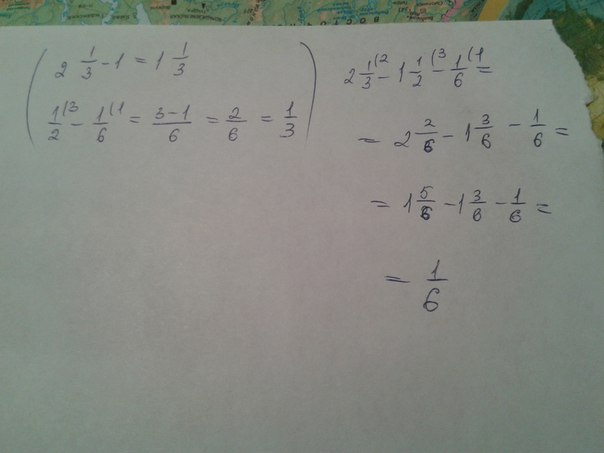 2 1/3 - 1 = 1 1/3
1/2 (3 - 1/6 (1 = 3-1/6 = 2/6 = 1/3
2 1/3 (2 - 1 1/2 (3 - 1/6 (1 =
= 2 2/6 - 1 3/6 - 1/6 =
= 1 5/6 - 1 3/6 - 1/6 =
= 1/6